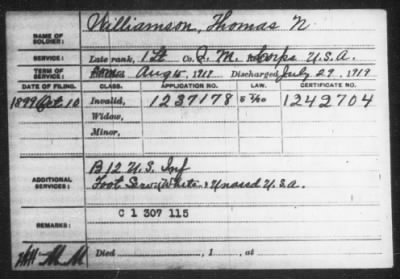 NAME OF SOLDIER: Williamson, Thomas N
SERVICE: Late rank, 1 Lt Co. Q. M. Corps U.S.A.
TERM OF SERVICE: Aug 15, 1917 Discharged July 29, 1919
DATE OF FILING. CLASS. APPLICATION NO. LAW. CERTIFICATE NO.
1899 Oct. 10 Invalid, 1237178 1242704
Widow,
Minor,
ADDITIONAL SERVICES: B 12 U.S. Inf
Foot Serv White & Unassd U.S.A.
REMARKS: C 1 307 115
Died , 1 , at